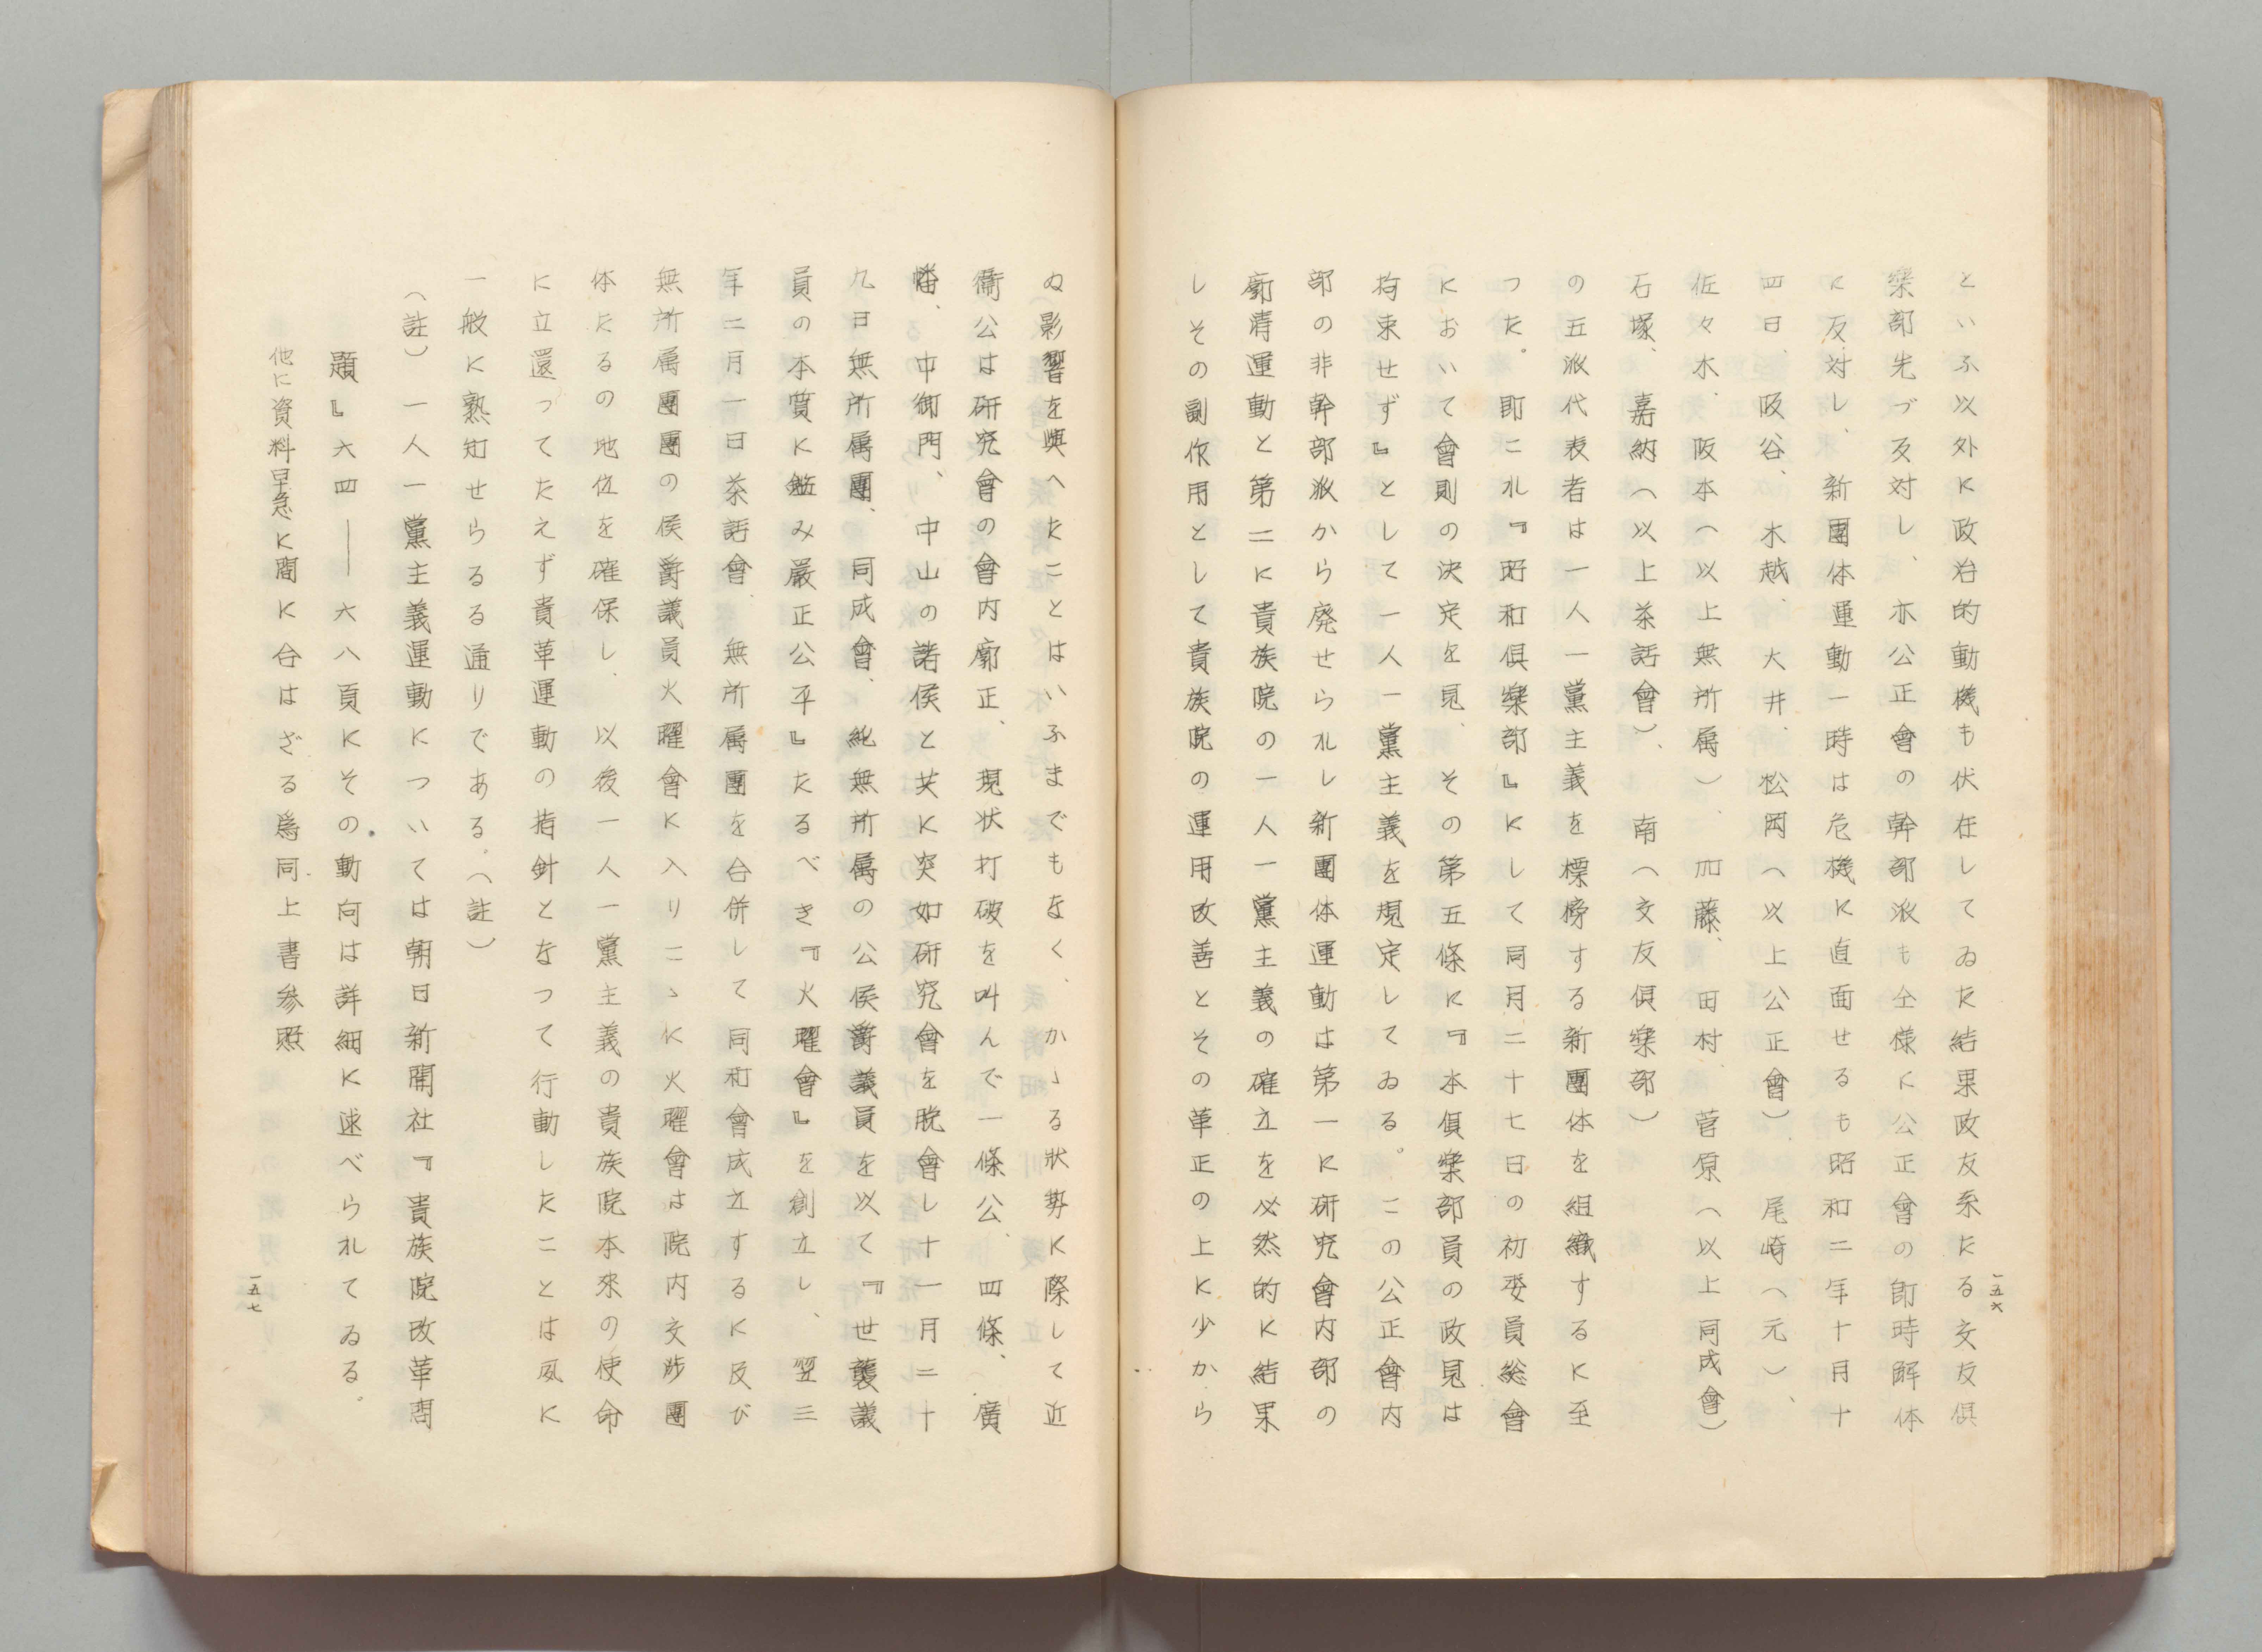 といふ以外に政治的動機も伏在してゐた結果政友系たる交友倶
楽部先づ反対し、亦公正會の幹部派も仝様に公正會の即時解体
に反対し、新團体運動一時は危機に直面せるも昭和二年十月十
四日、阪谷、木越、大井、松岡（以上公正會）、尾崎（元）、
佐々木、阪本（以上無所属）、加藤、田村、菅原（以上同成會）
石塚、嘉納（以上茶話會）、南（交友倶楽部）
の五派代表者は一人一黨主義を標榜する新團体を組織するに至
つた。即ニれ『昭和倶樂部』にして同月二十七日の初委員総會
において會則の決定を見、その第五條に『本倶樂部員の政見は
拘束せず』として一人一黨主義を規定してゐる。この公正會内
部の非幹部派から廃せられし新團体運動は第一に研究會内部の
廓清運動と第二に貴族院の一人一黨主義の確立を必然的に結果
しその副作用として貴族院の運用改善とその革正の上に少から
一五六
ぬ影響を與へたことはいふまでもなく、かゝる狀勢に際して近
衞公は研究會の會内廓正、現状打破を叫んで一條公、四條、廣
幡、中御門、中山の諸侯と共に突如研究會を脱會し十一月二十
九日無所属團、同成會、純無所属の公侯爵議員を以て『世襲議
員の本質に鑑み嚴正公平』たるべき『火曜會』を創立し、翌三
年二月一日茶話會、無所属團を合併して同和會成立するに及び
無所属團團の侯爵議員火曜會に入りこゝに火曜會は院内交渉團
体たるの地位を確保し、以後一人一黨主義の貴族院本來の使命
に立還つてたえず貴革運動の指針となつて行動したことは夙に
一般に熟知せらるる通りである。（註）
（註）一人一黨主義運動については朝日新聞社『貴族院改革問
題』六四――六八頁にその動向は詳細に述べられてゐる。
他に資料早急に間に合はざる爲同上書参照
一五七